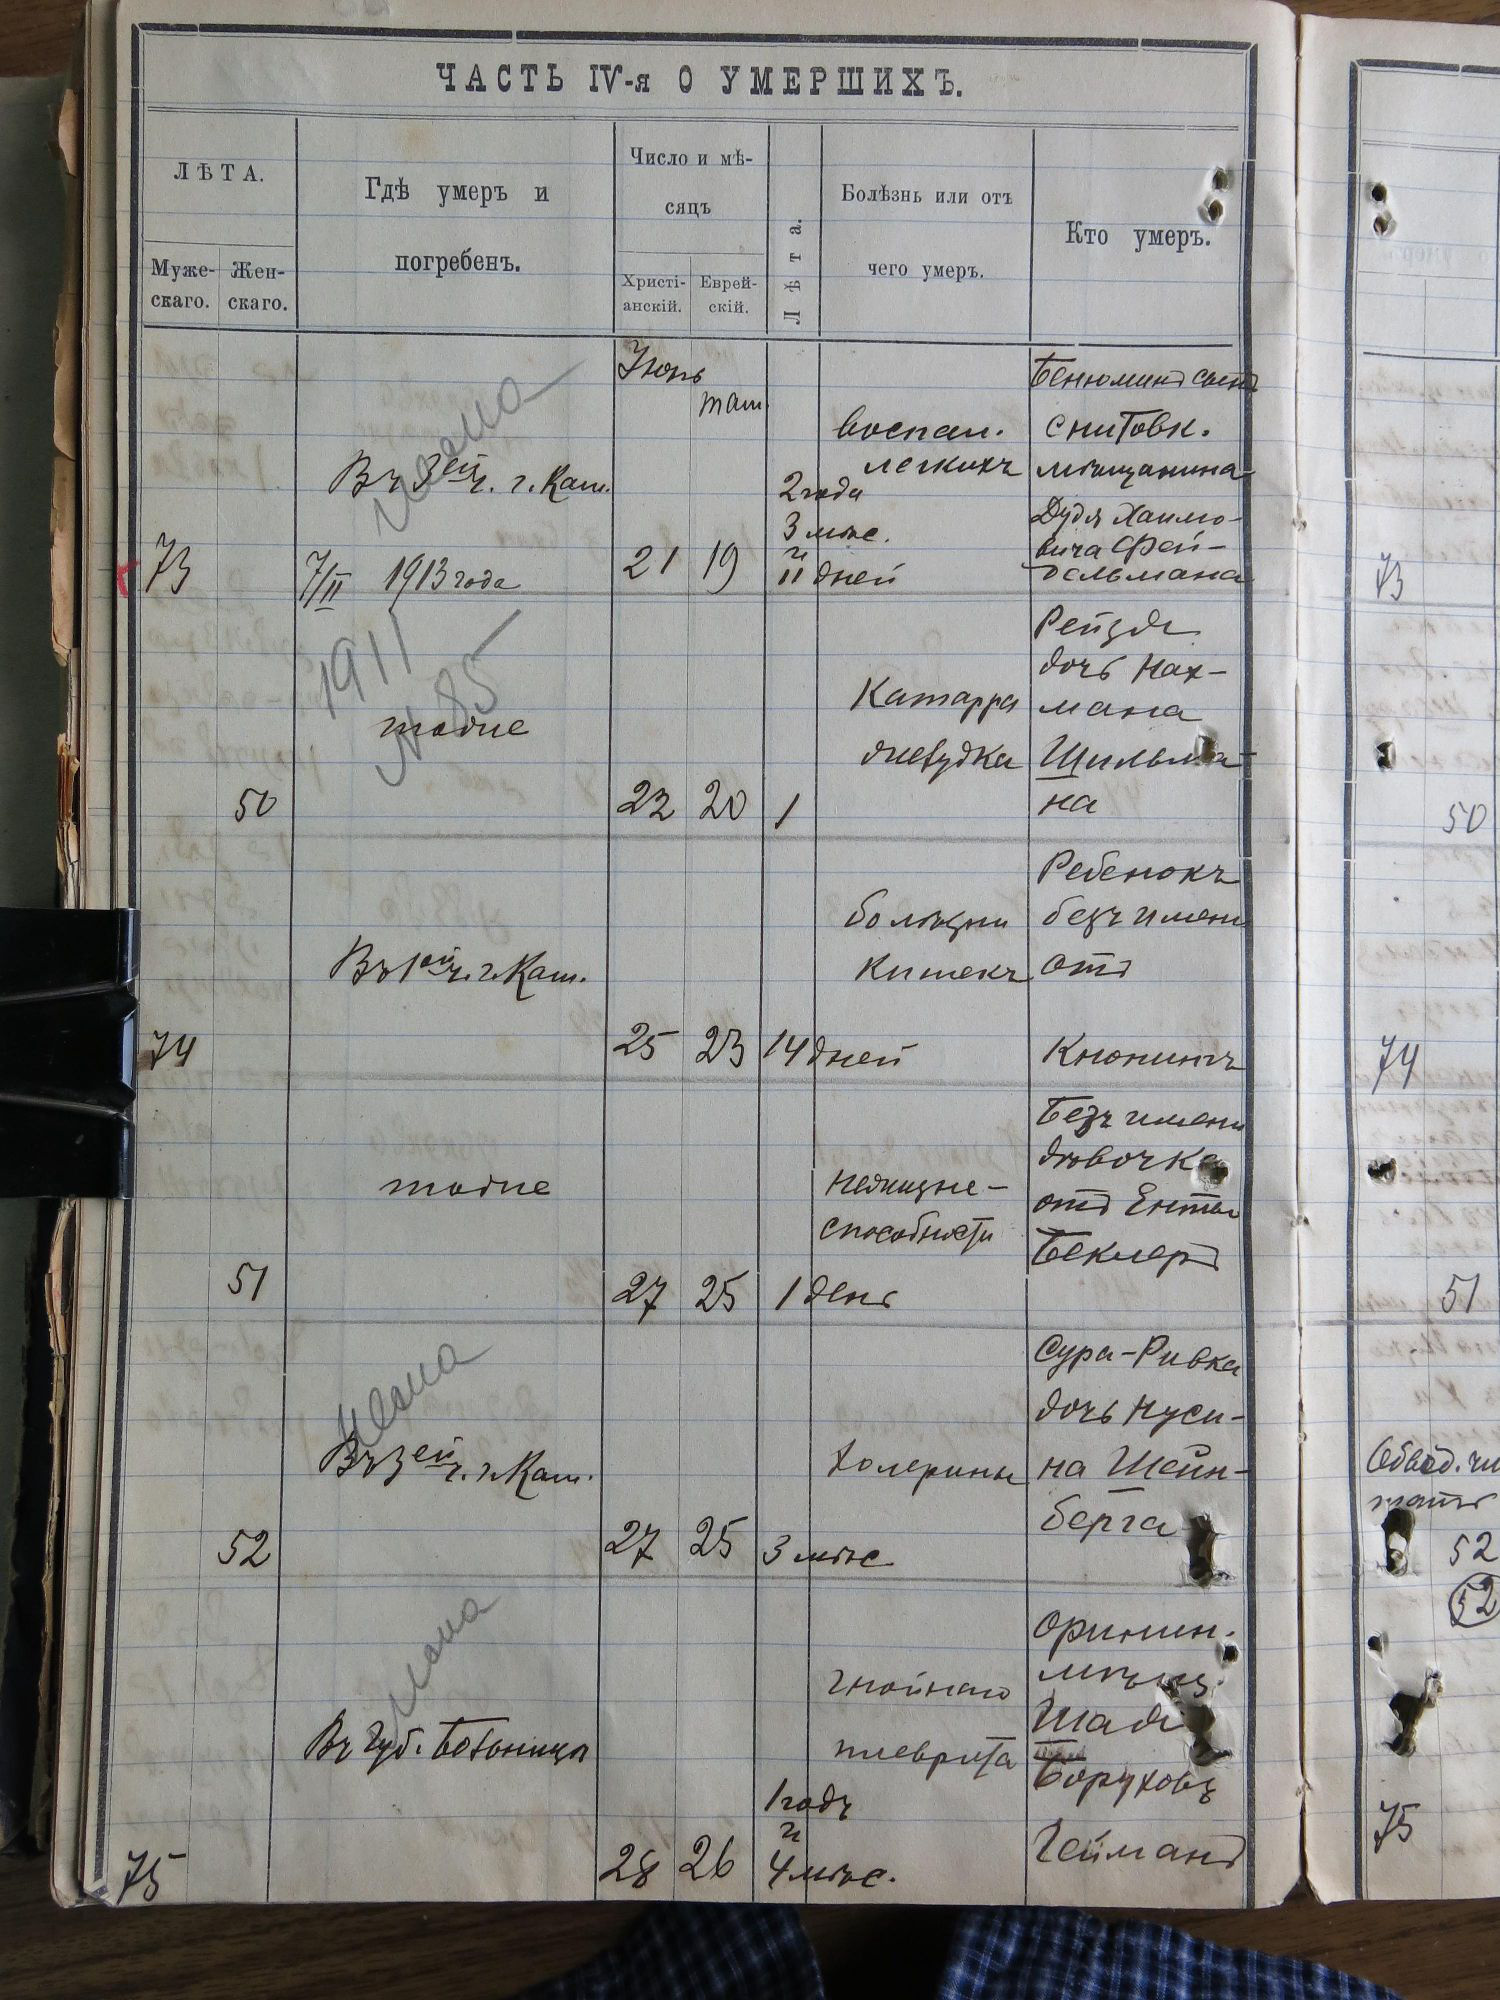 ЧАСТЬ IV-я О УМЕРШИХЪ.
ЛѢТА.
Муже-
скаго.
Жен-
скаго.
Гдѣ умеръ и
погребенъ.
Число и мѣ-
сяцъ
Христі-
анскій.
Еврей-
скій.
Лѣта.
Болѣзнь или отъ
чего умеръ.
Кто умеръ.
Іюнь
там.
73
Въ 3ей ч. г. Кам.
7/II 1913 года
21
19
2 года
3 мѣс.
и
11 дней
воспал.
легкихъ
Бенюминъ сынъ
Снитовк.
мѣщанина
Дудя Хаимо-
вича Фей-
дельмана
1911
N 85
50
тоже
22
20
1
Катарра
желудка
Рейзя
дочь Нах-
мана
Шильма-
на
74
Въ 1ой ч. г. Кам.
25
23
14 дней
болѣзни
кишекъ
Ребенокъ
безъ имени
отъ
Кнопингъ
51
тоже
27
25
1 день
нежизне-
способности
Безъ имени
дѣвочка
отъ Енты
Беклеръ
52
Въ 3ей ч. г. Кам.
27
25
3 мѣс
холерины
Сура-Ривка
дочь Нуси-
на Шейн-
берга
75
Въ Губ. Больницѣ
28
26
1 годъ
и
4 мѣс.
гнойнаго
плеврита
Оринин.
мѣщ.
Шая
Боруховъ
Гейманъ
73
50
74
51
52
52
75